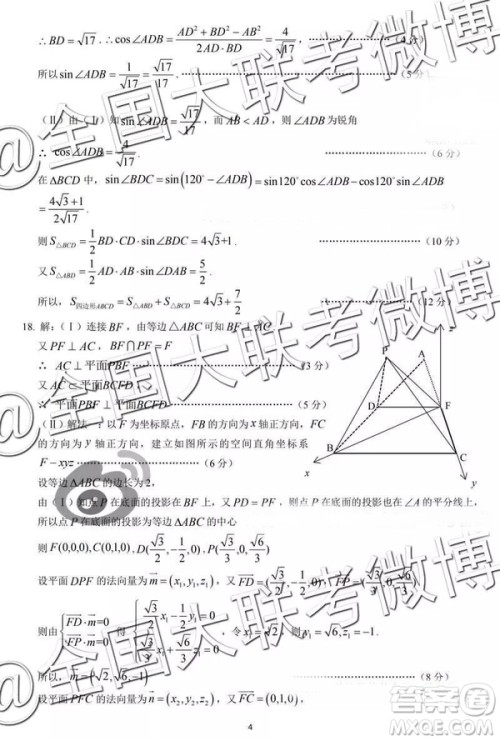 ∴ BD=√17. ∴cos∠ADB=(AD²+BD²−AB²)/(2AD·BD)=4/√17 ……………(4分)
所以 sin∠ADB=1/√17=√17/17. ……………(5分)
(Ⅱ)由(Ⅰ)知sin∠ADB=√17/17, 而 AB<AD, 则∠ADB 为锐角
∴ cos∠ADB=4/√17. ……………(6分)
在△BCD 中, sin∠BDC=sin(120°−∠ADB)=sin120°cos∠ADB−cos120°sin∠ADB
=(4√3+1)/(2√17).
则 S△BCD=1/2 BD·CD·sin∠BDC=4√3+1. ……………(10分)
又 S△ABD=1/2 AD·AB·sin∠DAB=5/2.
所以, S四边形ABCD=S△ABD+S△BCD=4√3+7/2 ……………(12分)
18. 解: (Ⅰ)连接 BF, 由等边△ABC 可知 BF⊥AC
又 PF⊥AC, BF∩PF=F
∴ AC⊥平面PBF ……………(3分)
又 AC⊂平面BCFD,
∴ 平面PBF⊥平面BCFD ……………(5分)
(Ⅱ)解法一: 以 F 为坐标原点, FB 的方向为 x 轴正方向, FC
的方向为 y 轴正方向, 建立如图所示的空间直角坐标系
F−xyz ……………(6分)
设等边△ABC 的边长为2,
由(Ⅰ)知点 P 在底面的投影在 BF 上, 又 PD=PF, 所以点 P 在底面的投影在∠A 的平分线上,
所以点 P 在底面的投影为等边△ABC 的中心
则 F(0,0,0), C(0,1,0), D(√3/2,−1/2,0), P(√3/3,0,√6/3)
设平面 DPF 的法向量为 m=(x₁,y₁,z₁), 又 FD=(√3/2,−1/2,0), FP=(√3/3,0,√6/3),
则由 {FD·m=0 FP·m=0 得 {√3/2 x₁−1/2 y₁=0 , 令 x₁=√2, 则 y₁=√6, z₁=−1.
所以, m=(√2,√6,−1) ……………(8分)
设平面 PFC 的法向量为 n=(x₂,y₂,z₂), 又 FC=(0,1,0),
4
P
A
D
F
B
C
x
y
@全国大联考微博
@全国大联考微博
答案圈
MXQE.COM